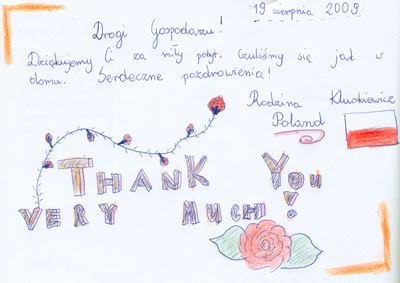 19 sierpnia 2009
Drogi Gospodarzu!
Dziękujemy Ci za miły pobyt. Czuliśmy się jak w
domu. Serdeczne pozdrowienia!
Rodzina Kluskiewicz
Poland
THANK YOU
VERY MUCH!